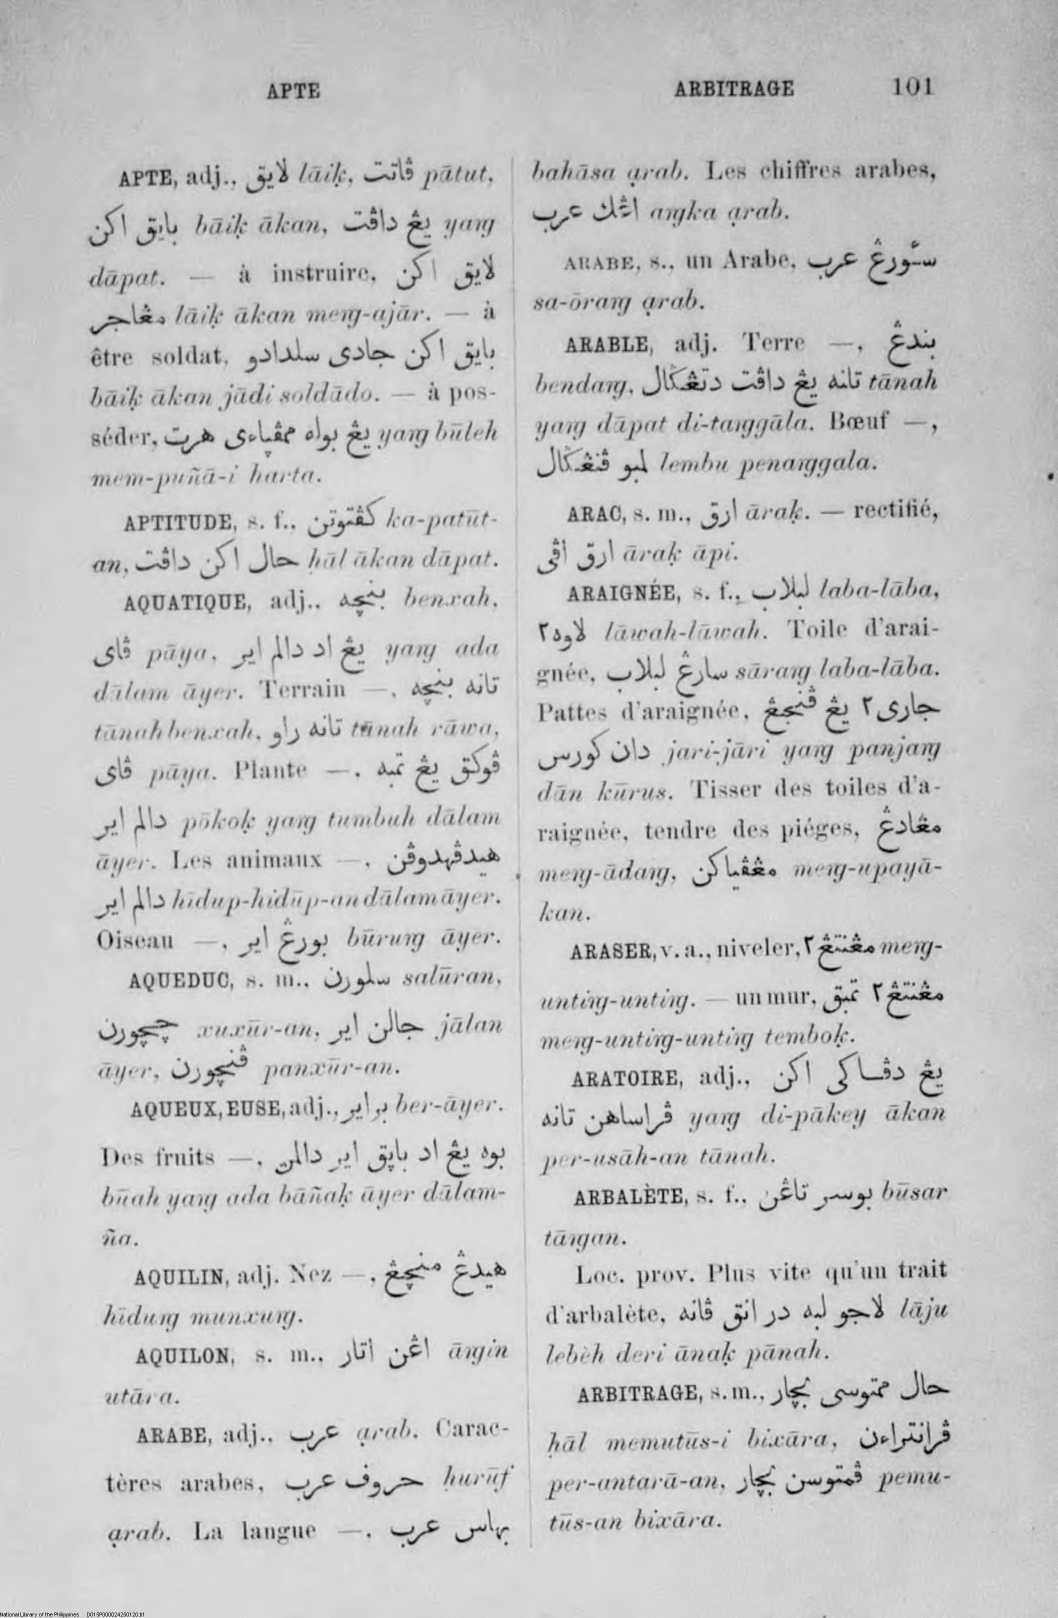 APTE
ARBITRAGE 101
APTE, adj., لايق lāiḳ, ڤاتت pātut,
بايق اكن bāiḳ ākan, يڠ داڤت yaṉg
dāpat. — à instruire, لايق اكن
مڠاجر lāik ākan meṉg-ajār. — à
être soldat, بايق اكن جادى سلدادو
bāiḳ ākan jādi soldādo. — à pos-
séder, يڠ بوله ممڤياءى هرت yaṉg būleh
mem-puñā-i harta.
APTITUDE, s. f., كڤتوتن ka-patūt-
an, حال اكن داڤت ḥāl ākan dāpat.
AQUATIQUE, adj., بنچه benxah,
ڤاى pāya, يڠ اد دالم اير yaṉg ada
dālam āyer. Terrain —, تانه بنچه
tānah benxah, تانه راو tānah rāwa,
ڤاى pāya. Plante —, ڤوكق يڠ تمبه
دالم اير pōkoḳ yaṉg tumbuh dālam
āyer. Les animaux —, هيدڤهدوڤن
دالم اير hīdup-hidūp-an dālam āyer.
Oiseau —, بورڠ اير būruṉg āyer.
AQUEDUC, s. m., سلورن salūran,
چچورن xuxūr-an, جالن اير jālan
āyer, ڤنچورن panxūr-an.
AQUEUX, EUSE, adj., براير ber-āyer.
Des fruits —, بوه يڠ اد باڽق اير دالمڽ
būah yaṉg ada bāñaḳ āyer dālam-
ña.
AQUILIN, adj. Nez —, هيدڠ منچڠ
hīduṉg munxuṉg.
AQUILON, s. m., اڠن اتار āṉgin
utāra.
ARABE, adj., عرب ạrab. Carac-
tères arabes, حروف عرب ḥurūf
ạrab. La langue —, بهاس عرب
bahāsa ạrab. Les chiffres arabes,
اڠك عرب aṉgka ạrab.
ARABE, s., un Arabe, سئورڠ عرب
sa-ōraṉg ạrab.
ARABLE, adj. Terre —, بندڠ
bendaṉg, تانه يڠ داڤت دتڠݢال tānah
yaṉg dāpat di-taṉggāla. Bœuf —,
لمبو ڤنڠݢال lembu penaṉggala.
ARAC, s. m., ارق āraḳ. — rectifié,
ارق اڤى āraḳ āpi.
ARAIGNÉE, s. f., لبلاب laba-lāba,
لاوه٢ lāwah-lāwah. Toile d'arai-
gnée, سارڠ لبلاب sāraṉg laba-lāba.
Pattes d'araignée, جارى٢ يڠ ڤنجڠ
دان كورس jari-jāri yaṉg panjaṉg
dān kūrus. Tisser des toiles d'a-
raignée, tendre des piéges, مڠادڠ
meṉg-ādaṉg, مڠڤياكن meṉg-upayā-
kan.
ARASER, v. a., niveler, مڠنتڠ٢ meṉg-
untiṉg-untiṉg. — un mur, مڠنتڠ٢ تمبق
meṉg-untiṉg-untiṉg temboḳ.
ARATOIRE, adj., يڠ دڤاكى اكن
ڤراساهن تانه yaṉg di-pākey ākan
per-usāh-an tānah.
ARBALÈTE, s. f., بوسر تاڠن būsar
tāṉgan.
Loc. prov. Plus vite qu'un trait
d'arbalète, لاجو لبه در انق ڤانه lāju
lebèh deri ānaḳ pānah.
ARBITRAGE, s. m., حال ممتوسى بچار
ḥāl memutūs-i bixāra, ڤرانتراءن
per-antarā-an, ڤمتوسن بچار pemu-
tūs-an bixāra.
National Library of the Philippines